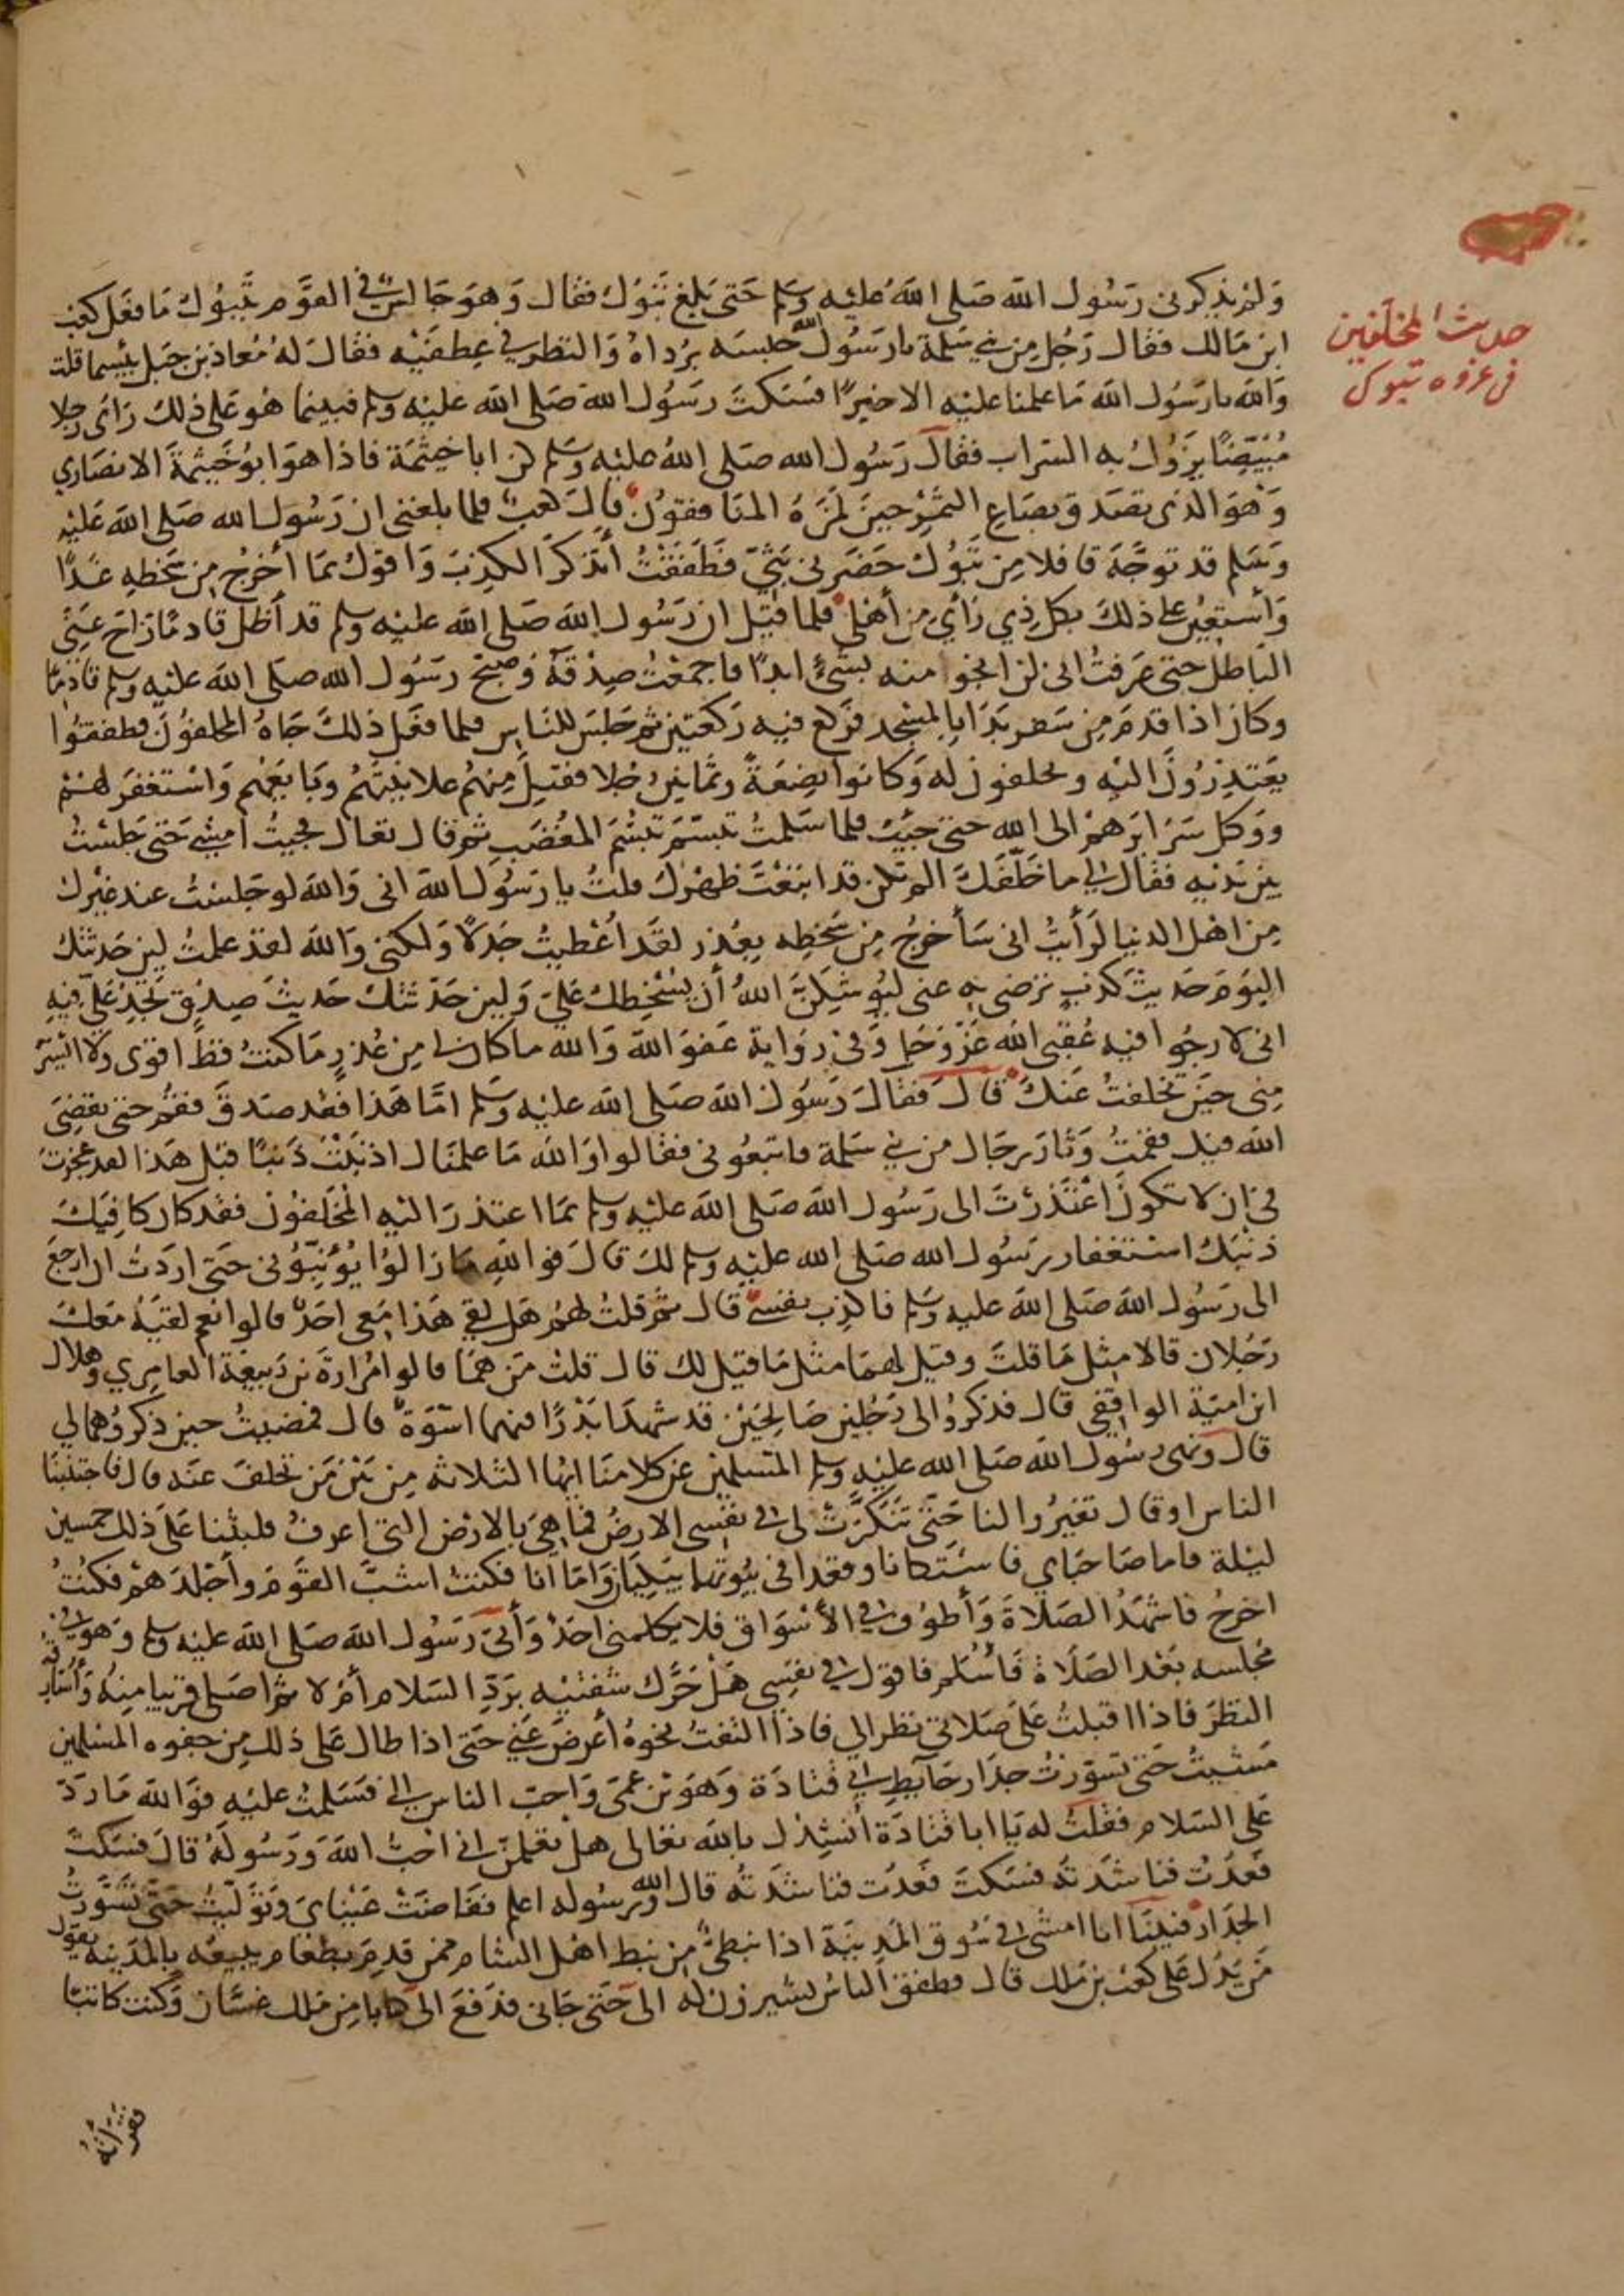 حديث المخلفين
في غزوه تبوك
وَلم يذكرني رَسُول الله صَلى اللهُ عليْه وسَلم حَتى بَلغ تَبُوك فقال وَهوَ جَالسٌ في القوَم بتَبُوك مَا فعَل كعب
ابن مَالك فقال رَجُل مِن بني سَلمة يا رَسُول الله حَبسَه بُرداهُ وَالنظر في عِطفَيْه فقالَ لهُ مُعاذ بن جَبل بئسما قلت
وَالله يا رَسُول الله مَا علمنا عليْه الا خيرًا فسَكتَ رسَوُل الله صَلى الله عليْه وسلم فبينما هُو عَلى ذلك رَأى رجلا
مُبيّضًا يَزوُلُ به السَراب فقالَ رَسُول الله صَلى اللهُ عليْه وسَلم كن ابا خيثمَة فاذا هوَ ابوُ خَيثمَة الانصَاري
وَهوَ الذي تصَدق بصَاع التمَرْ حينَ لمَزَهُ المنَافقوُن قالَ كعبٌ فلما بلغني ان رَسُول الله صَلى الله عَليْه
وَسَلم قد توجَّه قافلا مِن تَبوُك حَضرَني بثيّ فطَفقْتُ أتذكر الكذِبَ وَاقولُ بمَا أخرُج مِن سَخَطِهِ غَدًا
وَأستعِينُ على ذلكَ بكل ذي رَأيٍ من أهلي فلما قيْل ان رَسُول الله صَلى الله عليْه وسلم قد أظل قادمًا زَاحَ عَنّي
البَاطل حتى عَرفتُ اني لن انجوا منه بشيْءٍ ابدًا فاجمَعْتُ صِدْقهُ وَصبحَ رسَوُل الله صَلى الله عليْه وسلم قادمًا
وكان اذا قدمَ من سَفر بَدَا بالمسْجد فركع فيه ركعتين ثم جَلسَ للنَاس فلما فعَل ذلكَ جَاهُ المخلفوُن فطفقوُا
يعَتذرُوُنَ اليْه ويحلفون لهُ وَكانوا بضِعَةً وثمانين رجلا فقبل منهُم علانيتهُم وَبَايعَهُم وَاسْتغفرَ لهُمْ
ووَكل سَرَايرَهمْ الى الله حتى جئت فلما سَلمتُ تبسَّمَ تبسُمَ المغُضَب ثم قال تعالَ فجيتُ امشي حَتى جَلسْتُ
بين يَدَيه فقال لي ما خَلَّفَكَ الم تكن قد ابتعْتَ ظهْرَك قلتُ يا رَسوُل الله اني وَالله لو جَلسْتُ عند غيْرك
مِن اهْل الدنيا لرَأيتُ اني سَأخرجُ مِن سَخطه بعُذر لقَد اُعْطيتُ جَدلًا وَلكني وَالله لقد علمتُ لين حَدثتك
اليَومَ حَديثَ كذبٍ ترضى به عني ليُوشِكَنَّ اللهُ أن يُسْخطك عَليّ وَلين حَدثتكَ حَديثَ صِدْق تجدُ عَليّ فيْهِ
اني لارجُوا فيه عُقبَى الله عَزّ وَجَل وَفي رِوَاية عَفوَ الله وَالله ما كان لي مِن عُذرٍ مَا كنتُ قطُ اقوى ولا ايْسَر
مِني حيَن تخلفتُ عَنك قالَ فقالَ رَسُول الله صَلى الله عليْه وَسَلم امّا هَذا فقد صَدقَ فقُم حتى يقضيَ
الله فيك فقمتُ وَثارَ رجَال من بني سَلمة فاتبعُوني فقالوا وَالله مَا علمنَاك اذنبْتَ ذنبًا قبل هَذا لقد عجزتَ
في ان لا تكونَ اعْتذرْتَ الى رَسُول الله صَلى الله عليْه وسلم بمَا اعتذرَ اليْه المُخلفُون فقد كان كافيَكَ
ذنْبَك استغفار رسَوُل الله صَلى الله عليْه وسلم لكَ قالَ فوَالله مَا زالوُا يُؤنبُوني حَتى ارَدتُ ان ارجعَ
الى رَسوُل الله صَلى الله عليه وسَلم فاكذِب نفسي قال ثم قلتُ لهُم هَل لقي هَذا مَعي احَدٌ قالوا نعم لقيَهُ معَكَ
رَجُلان قالا مِثل مَا قلتَ وقيل لهمَا مثل مَا قيْل لك قال قلتُ مَن هُمَا قالوا مُرارة بن رَبيعَة العامِري وَهلال
ابن اميّة الواقفي قال فذكروُا لي رَجُلين صَالحَيْن قد شهدَا بَدْرًا فيهما اسْوَةٌ قال فمضيتُ حين ذكروُهما لي
قالَ وَنهى رسُول الله صَلى الله عليْهِ وسلم المسْلمين عن كلامنَا ايُها الثلاثه مِن بَيْن مَن تخلفَ عنه قال فاجتنبنَا
الناس او قال تغيرُوا لنا حَتى تنَكرَّتْ لي في نفسي الارضُ فما هيَ بالارْض التي اعرفُ فلبثنا عَلى ذلك خمسين
ليْلة فاما صَاحبَاي فاسْتكانا وقعدا في بيُوتهما يَبكِيَان وَامّا انا فكنتُ اشبَّ القوَمَ وأجْلَدَهمْ فكنتُ
اخرجُ فاشهَدُ الصَلاة وَأطوُف في الأسْوَاق فلا يكلمني احَدٌ وَأتي رَسُول الله صَلى الله عليْه وسلم وَهوَ في
مجْلسه بعْد الصَلَاة فأسَلم فاقولُ في نفسي هَلْ حَرّك شفتيْه برَدِّ السَلام أم لا ثم اصَلي قريبا منهُ وَأسَارِقُهُ
النظرَ فاذا اقبلتُ عَلى صَلاتي نظر الي فاذا التفتُ نحوهُ أعرضَ عَنّي حَتى اذا طال عَلى ذلك من جفوه المسْلمين
مَشيتُ حَتى تسوّرتُ جدَار حَآيط ابي قتادَة وَهوَ بن عَمّي وَاحبّ الناس الي فسَلمتُ عليْه فوَالله مَا رَدّ
عَلي السَلام فقلتُ له يَا ابا قتادَة أنشِدُك بالله تعَالى هل تعْلمنّ اني احبُّ اللهَ وَرَسُولهُ قالَ فسَكتَ
فعدُتُ فناشدَتهُ فسَكتَ فعَدُت فناشدَتهُ قال الله ورسُوله اعلم ففَاضَتْ عَيْنايَ وَتوَليّتُ حَتى تسَوّرتُ
الجدَار فبينَا انا امشي في سُوق المَدينَة اذا نبطيٌّ مِن نبط اهْل الشام ممن قدمَ بطعام يبيعُه بالمدَينه يقول
مَن يَدُل عَلى كعْب بن مَلك قال فطفقَ الناسُ يشيرونَ له الى حَتى جَاني فدَفعَ الى كتابا مِن مَلك غسَّان وَكنت كاتبًا
فقراته